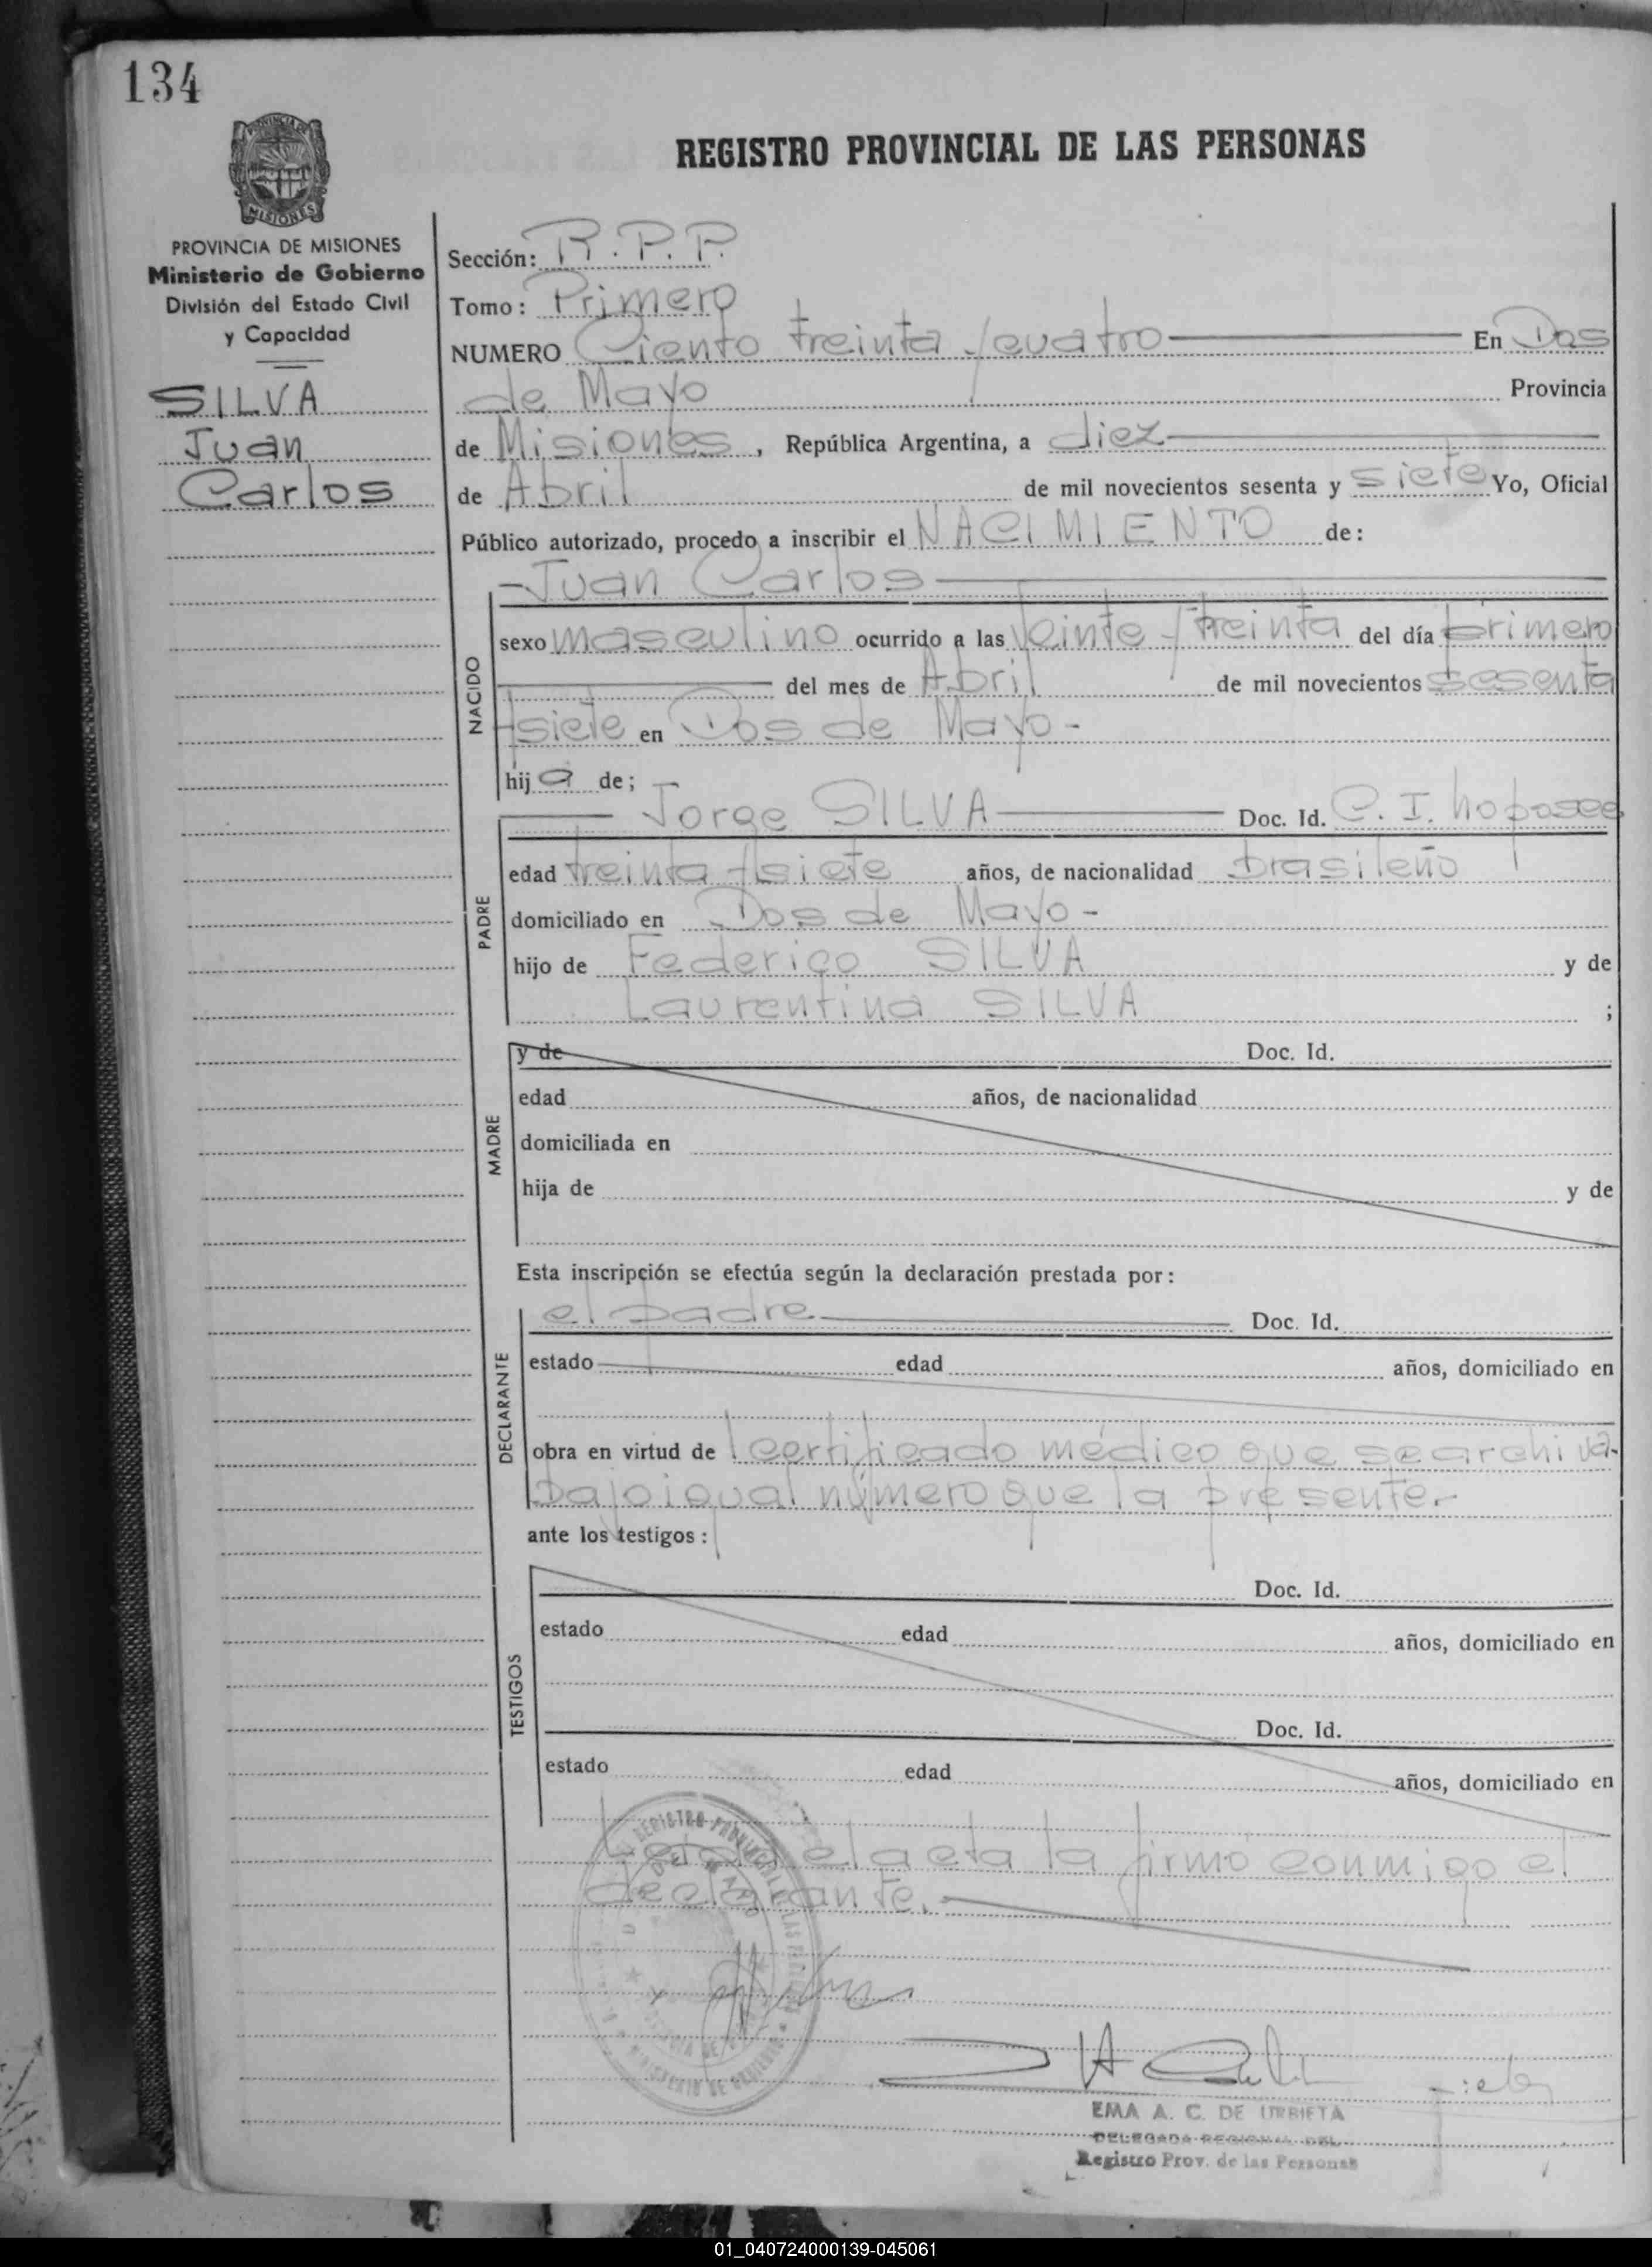 134
REGISTRO PROVINCIAL DE LAS PERSONAS
PROVINCIA DE MISIONES
Ministerio de Gobierno
División del Estado Civil
y Capacidad
SILVA
Juan
Carlos
Sección: R.P.P.
Tomo: Primero
NUMERO Ciento treinta y cuatro En Dos
de Mayo Provincia
de Misiones, República Argentina, a diez
de Abril de mil novecientos sesenta y siete Yo, Oficial
Público autorizado, procedo a inscribir el NACIMIENTO de:
Juan Carlos
NACIDO
sexo masculino ocurrido a las veinte y treinta del día primero
del mes de Abril de mil novecientos sesenta
y siete en Dos de Mayo-
hij o de;
Jorge SILVA Doc. Id. C. I. no posee
PADRE
edad treinta y siete años, de nacionalidad brasileño
domiciliado en Dos de Mayo-
hijo de Federico SILVA y de
Laurentina SILVA ;
MADRE
y de Doc. Id.
edad años, de nacionalidad
domiciliada en
hija de y de
Esta inscripción se efectúa según la declaración prestada por:
el padre Doc. Id.
DECLARANTE
estado edad años, domiciliado en
obra en virtud de l certificado médico que se archiva
bajo igual número que la presente.-
ante los testigos:
TESTIGOS
Doc. Id.
estado edad años, domiciliado en
Doc. Id.
estado edad años, domiciliado en
el acta la firmó conmigo el
declarante.
EMA A. C. DE URRIETA
DELEGADA REGIONAL DEL
Registro Prov. de las Personas
01_040724000139-045061